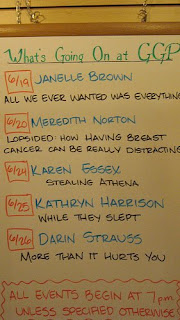 What's Going On at GGP
6/19 JANELLE BROWN
ALL WE EVER WANTED WAS EVERYTHING
6/20 MEREDITH NORTON
LOPSIDED: HOW HAVING BREAST
CANCER CAN BE REALLY DISTRACTING
6/24 KAREN ESSEX
STEALING ATHENA
6/25 KATHRYN HARRISON
WHILE THEY SLEPT
6/26 DARIN STRAUSS
MORE THAN IT HURTS YOU
ALL EVENTS BEGIN AT 7pm
UNLESS SPECIFIED OTHERWISE